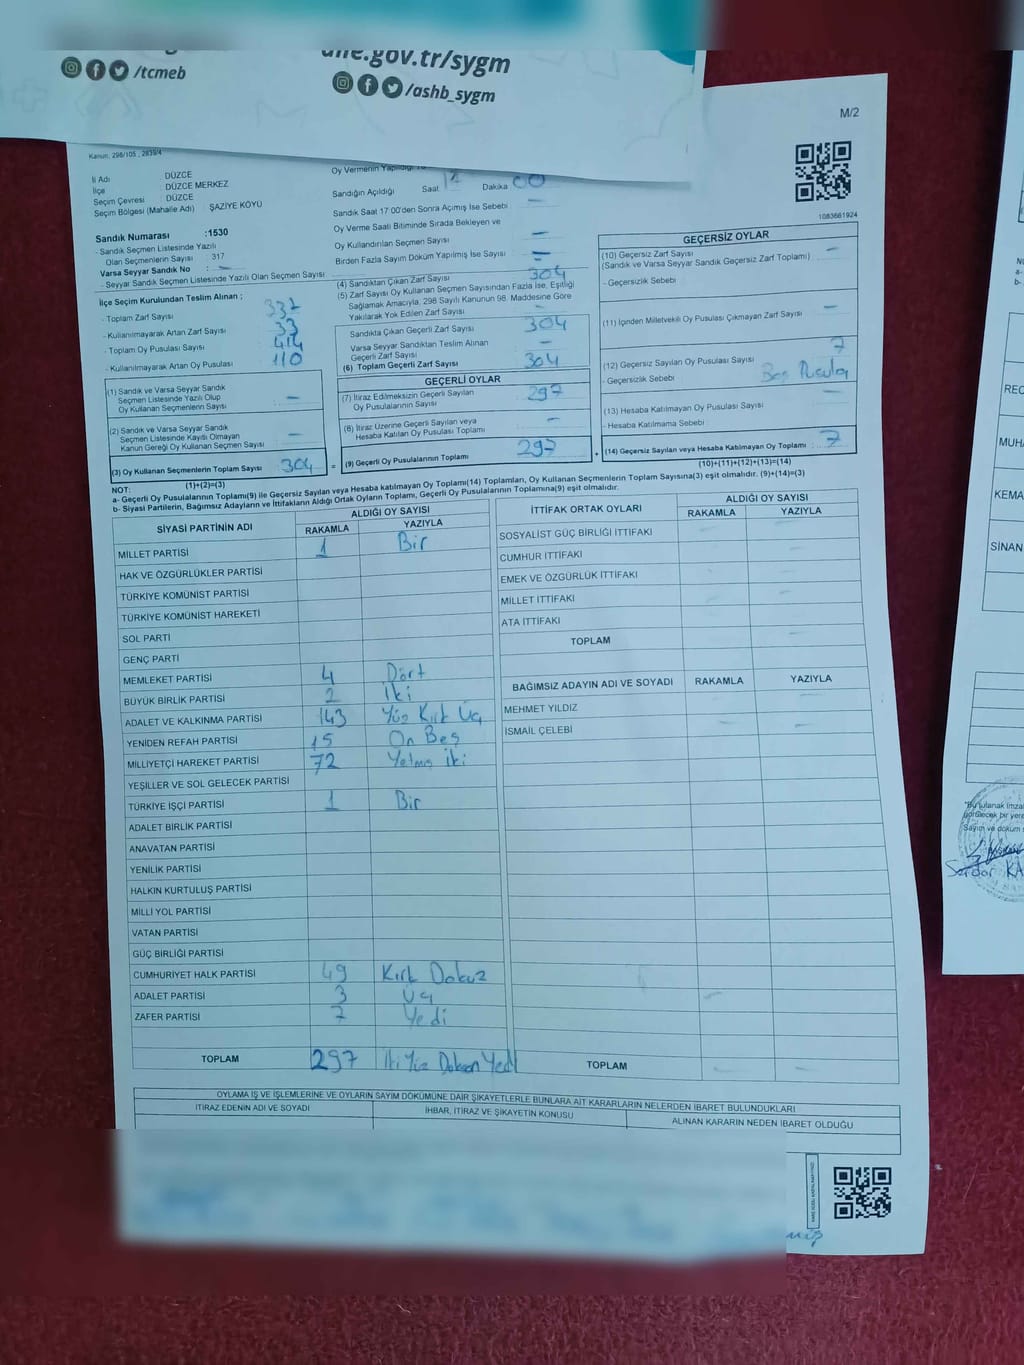 /tcmeb
aile.gov.tr/sygm
/ashb_sygm
M/2
Kanun: 298/105 , 2839/4
İl Adı : DÜZCE
İlçe : DÜZCE MERKEZ
Seçim Çevresi : DÜZCE
Seçim Bölgesi (Mahalle Adı) ŞAZİYE KÖYÜ
Sandık Numarası :1530
- Sandık Seçmen Listesinde Yazılı
Olan Seçmenlerin Sayısı : 317
Varsa Seyyar Sandık No : -
- Seyyar Sandık Seçmen Listesinde Yazılı Olan Seçmen Sayısı
İlçe Seçim Kurulundan Teslim Alınan ;
- Toplam Zarf Sayısı : 337
- Kullanılmayarak Artan Zarf Sayısı : 33
- Toplam Oy Pusulası Sayısı : 414
- Kullanılmayarak Artan Oy Pusulası : 110
(1) Sandık ve Varsa Seyyar Sandık
Seçmen Listesinde Yazılı Olup
Oy Kullanan Seçmenlerin Sayısı : -
(2) Sandık ve Varsa Seyyar Sandık
Seçmen Listesinde Kaydı Olmayan
Kanun Gereği Oy Kullanan Seçmen Sayısı : -
(3) Oy Kullanan Seçmenlerin Toplam Sayısı : 304
(1)+(2)=(3)
Oy Vermenin Yapıldığı
Sandığın Açıldığı Saat 17 Dakika 00
Sandık Saat 17:00'den Sonra Açılmış İse Sebebi -
Oy Verme Saati Bitiminde Sırada Bekleyen ve
Oy Kullandırılan Seçmen Sayısı -
Birden Fazla Sayım Döküm Yapılmış İse Sayısı : -
(4) Sandıktan Çıkan Zarf Sayısı 304
(5) Zarf Sayısı Oy Kullanan Seçmen Sayısından Fazla İse, Eşitliği
Sağlamak Amacıyla, 298 Sayılı Kanunun 98. Maddesine Göre
Yakılarak Yok Edilen Zarf Sayısı : -
Sandıkta Çıkan Geçerli Zarf Sayısı 304
Varsa Seyyar Sandıktan Teslim Alınan
Geçerli Zarf Sayısı : -
(6) Toplam Geçerli Zarf Sayısı 304
GEÇERLİ OYLAR
(7) İtiraz Edilmeksizin Geçerli Sayılan
Oy Pusulalarının Sayısı 297
(8) İtiraz Üzerine Geçerli Sayılan veya
Hesaba Katılan Oy Pusulası Toplamı -
= (9) Geçerli Oy Pusulalarının Toplamı : 297 +
1083661924
GEÇERSİZ OYLAR
(10) Geçersiz Zarf Sayısı
(Sandık ve Varsa Seyyar Sandık Geçersiz Zarf Toplamı) : -
- Geçersizlik Sebebi :
(11) İçinden Milletvekili Oy Pusulası Çıkmayan Zarf Sayısı : -
(12) Geçersiz Sayılan Oy Pusulası Sayısı : 7
- Geçersizlik Sebebi : Boş Pusula
(13) Hesaba Katılmayan Oy Pusulası Sayısı : -
- Hesaba Katılmama Sebebi :
(14) Geçersiz Sayılan veya Hesaba Katılmayan Oy Toplamı : 7
(10)+(11)+(12)+(13)=(14)
NOT:
a- Geçerli Oy Pusulalarının Toplamı(9) ile Geçersiz Sayılan veya Hesaba katılmayan Oy Toplamı(14) Toplamları, Oy Kullanan Seçmenlerin Toplam Sayısına(3) eşit olmalıdır. (9)+(14)=(3)
b- Siyasi Partilerin, Bağımsız Adayların ve İttifakların Aldığı Ortak Oyların Toplamı, Geçerli Oy Pusulalarının Toplamına(9) eşit olmalıdır.
SİYASİ PARTİNİN ADI ALDIĞI OY SAYISI
RAKAMLA YAZIYLA
MİLLET PARTİSİ 1 Bir
HAK VE ÖZGÜRLÜKLER PARTİSİ
TÜRKİYE KOMÜNİST PARTİSİ
TÜRKİYE KOMÜNİST HAREKETİ
SOL PARTİ
GENÇ PARTİ
MEMLEKET PARTİSİ 4 Dört
BÜYÜK BİRLİK PARTİSİ 2 İki
ADALET VE KALKINMA PARTİSİ 143 Yüz Kırk Üç
YENİDEN REFAH PARTİSİ 15 On Beş
MİLLİYETÇİ HAREKET PARTİSİ 72 Yetmiş İki
YEŞİLLER VE SOL GELECEK PARTİSİ
TÜRKİYE İŞÇİ PARTİSİ 1 Bir
ADALET BİRLİK PARTİSİ
ANAVATAN PARTİSİ
YENİLİK PARTİSİ
HALKIN KURTULUŞ PARTİSİ
MİLLİ YOL PARTİSİ
VATAN PARTİSİ
GÜÇ BİRLİĞİ PARTİSİ
CUMHURİYET HALK PARTİSİ 49 Kırk Dokuz
ADALET PARTİSİ 3 Üç
ZAFER PARTİSİ 7 Yedi
TOPLAM 297 İki Yüz Doksan Yedi
İTTİFAK ORTAK OYLARI ALDIĞI OY SAYISI
RAKAMLA YAZIYLA
SOSYALİST GÜÇ BİRLİĞİ İTTİFAKI - -
CUMHUR İTTİFAKI - -
EMEK VE ÖZGÜRLÜK İTTİFAKI - -
MİLLET İTTİFAKI - -
ATA İTTİFAKI - -
TOPLAM -
BAĞIMSIZ ADAYIN ADI VE SOYADI RAKAMLA YAZIYLA
MEHMET YILDIZ - -
İSMAİL ÇELEBİ - -
TOPLAM - -
OYLAMA İŞ VE İŞLEMLERİNE VE OYLARIN SAYIM DÖKÜMÜNE DAİR ŞİKAYETLERLE BUNLARA AİT KARARLARIN NELERDEN İBARET BULUNDUKLARI
İTİRAZ EDENİN ADI VE SOYADI İHBAR, İTİRAZ VE ŞİKAYETİN KONUSU ALINAN KARARIN NEDEN İBARET OLDUĞU
REC
MUH
KEMA
SİNAN
Serdar KA